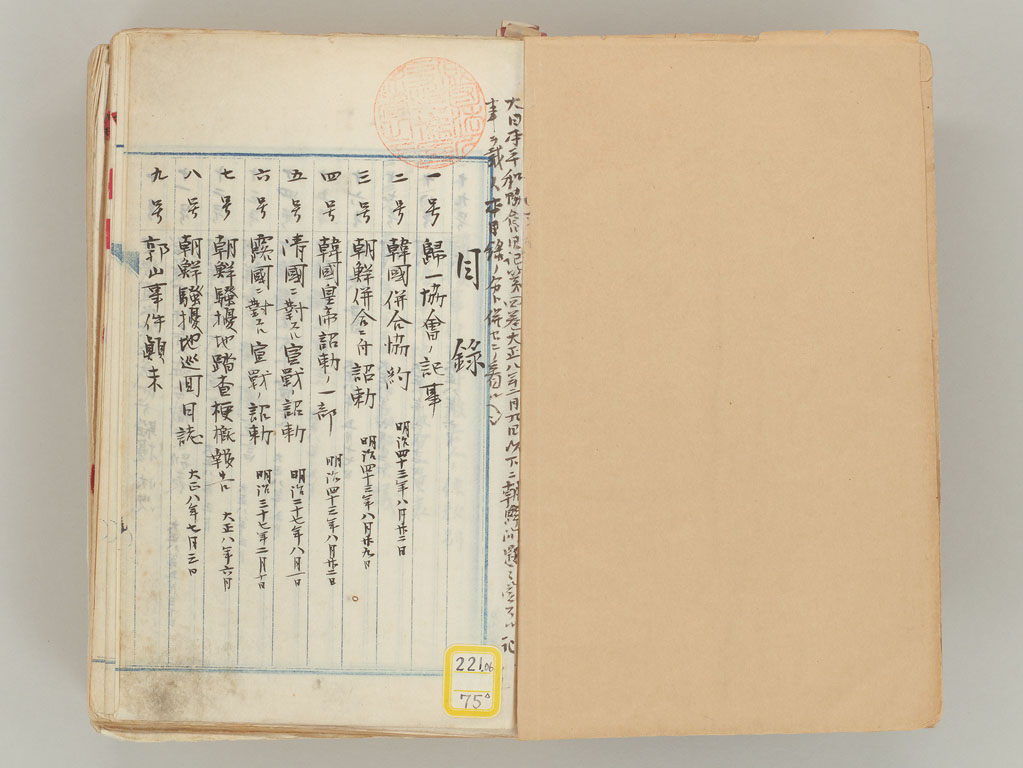 大日本平和協會日記第四巻大正八年二月九日以下ニ朝鮮問題ニ関スル記
事ヲ載ス本目録ノ分ト併セテ看ル
目錄
一号 歸一協會ノ記事
二号 韓國併合協約 明治四十三年八月廿二日
三号 朝鮮併合ニ付詔勅 明治四十三年八月廿九日
四号 韓國皇帝詔勅ノ一部 明治四十三年八月廿二日
五号 清國ニ對スル宣戰ノ詔勅 明治二十七年八月一日
六号 露國ニ對スル宣戰ノ詔勅 明治三十七年二月十日
七号 朝鮮騷擾地踏査梗概報告 大正八年六月
八号 朝鮮騷擾地巡回日誌 大正八年七月三日
九号 郭山事件顚末
221.06
75△